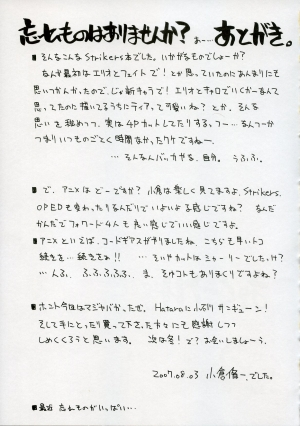 忘れものはありませんか? あ…… あとがき。
■そんなこんなStrikers本でした。いかがなものでしょーか?
なんか最初はエリオとフェイトで!とか思っていたのにあんまりにも
思いつかんかったので、じゃ新キャラで!エリオとキャロでいくかーなんて
思ってたのに描いてるうちにティアって可愛いね?とか、そんな
思いを秘めつつ、実は4Pカットしてたりする。つー…なんつーか
つまりいつものごとく時間なかったワケですねー。
… そんなんばっかやね、自分。うふふ。
■で、アニメはどーですか?小倉は楽しく見てますよ、Strikers。
OPEDも変わったりなんだりでいよいよな感じですね?なんだ
かんだでフォワード4人も良い感じでいい感じですよ。
■アニメといえば、コードギアスが予りましたね、こちらも早いトコ
続きを…続きをぉ!! … そいやカットはシャーリーでしたっけ?
… んふ、ふ、ふ、ふ、ふ、ふ。ま、そゆコトもありまくりですよね?
■ホント今回はマジヤバかったぜ。Hataraにふぶりサンキューン!
そして手にとったり買って下さった方々にも感謝しつつ
しめくくろうと思います。次は冬!で?お会いしましょーう。
2007.08.03 小倉脩一、でした。
■最近 忘れものがいっぱい…